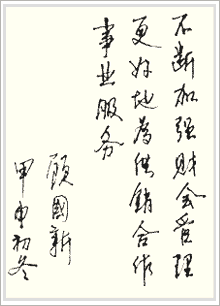 不断加强财会管理
更好地为供销合作
事业服务
顾國新
甲申初冬